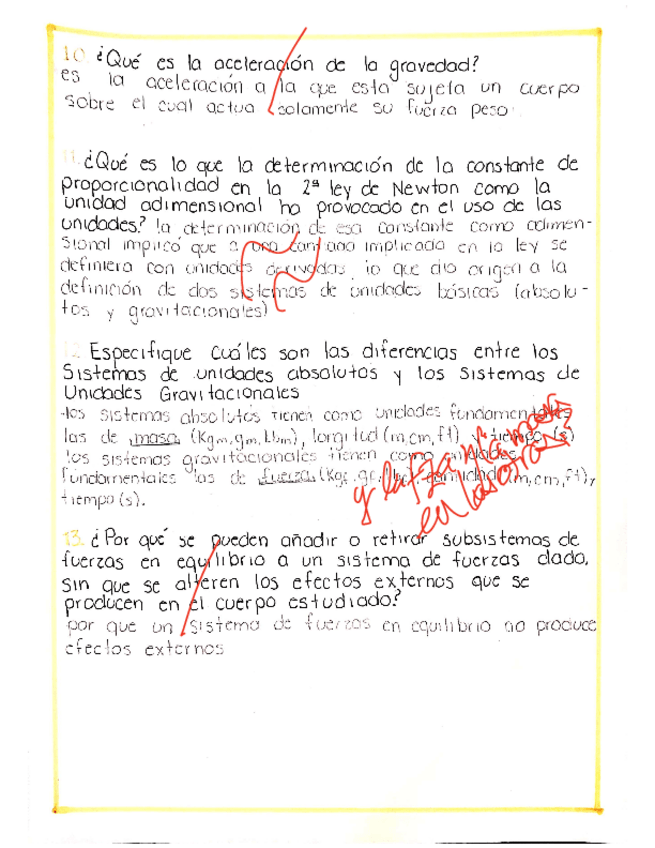 10. ¿Qué es la aceleración de la gravedad?
es la aceleración a la que esta sujeta un cuerpo
sobre el cual actua solamente su fuerza peso.
11. ¿Qué es lo que la determinación de la constante de
proporcionalidad en la 2ª ley de Newton como la
unidad adimensional ha provocado en el uso de las
unidades? la determinación de esa constante como adimen-
sional implicó que a una cantidad implicada en la ley se
definiera con unidades derivadas, lo que dio origen a la
definición de dos sistemas de unidades básicas (absolu-
tos y gravitacionales)
12. Especifique cuáles son las diferencias entre los
Sistemas de unidades absolutos y los sistemas de
Unidades Gravitacionales
-los sistemas absolutos tienen como unidades fundamentales
las de masa (Kgm, gm, Lbm), longitud (m, cm, ft) y tiempo (s)
los sistemas gravitacionales tienen como unidades
fundamentales las de fuerza (Kgf, gf, Lbf), (m, cm, ft), y
tiempo (s).
y la fza
en las otras?
13. ¿Por qué se pueden añadir o retirar subsistemas de
fuerzas en equilibrio a un sistema de fuerzas dado,
sin que se alteren los efectos externos que se
producen en el cuerpo estudiado?
por que un sistema de fuerzas en equilibrio no produce
efectos externos